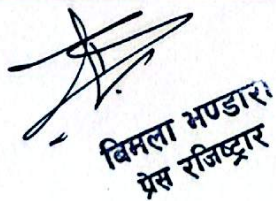 बिमला भण्डारी
प्रेस रजिष्ट्रार